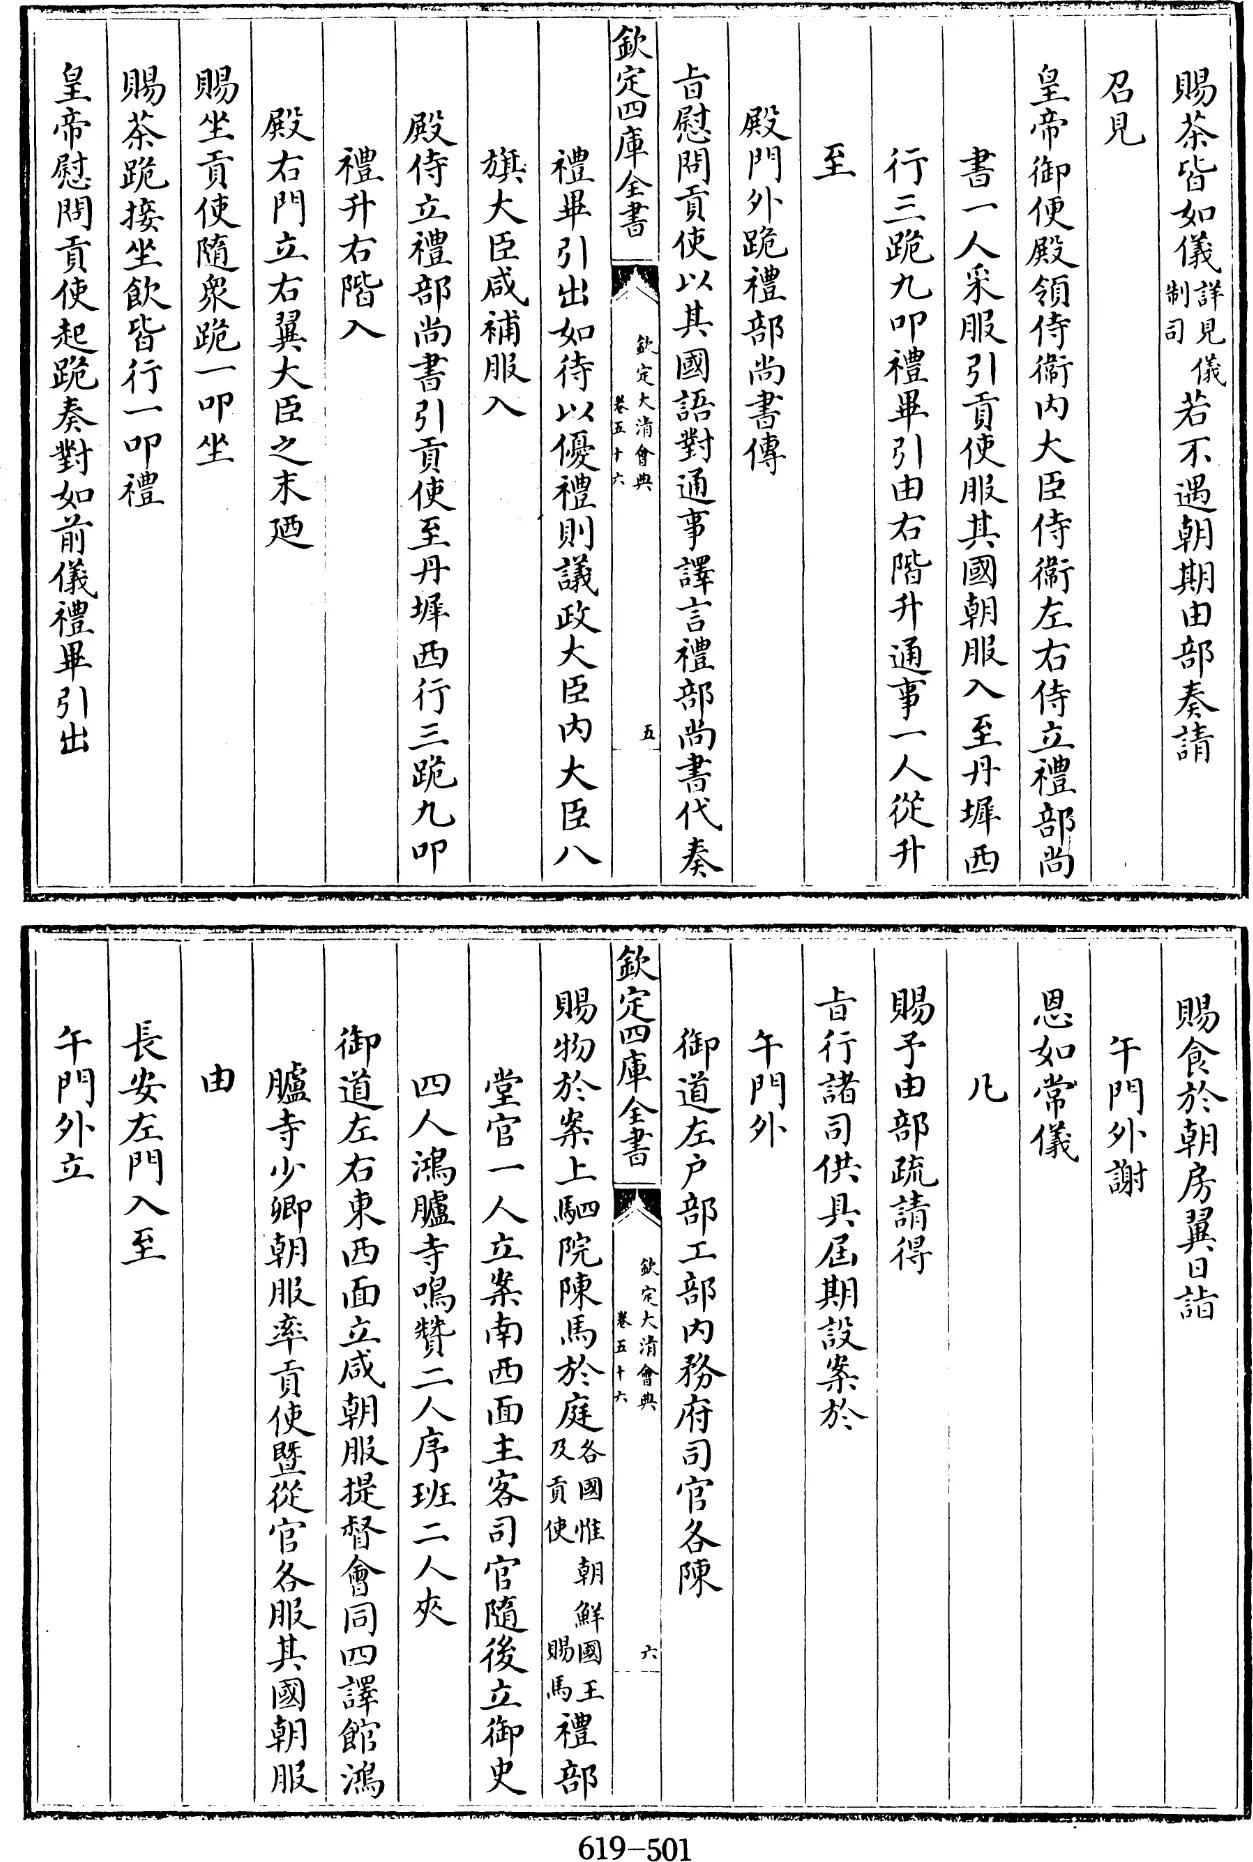 賜茶皆如儀詳見儀制司若不遇朝期由部奏請
召見
皇帝御便殿領侍衞内大臣侍衞左右侍立禮部尚
書一人采服引貢使服其國朝服入至丹墀西
行三跪九叩禮畢引由右階升通事一人從升
至
殿門外跪禮部尚書傳
旨慰問貢使以其國語對通事譯言禮部尚書代奏
欽定四庫全書
欽定大清會典
卷五十六
五
禮畢引出如待以優禮則議政大臣内大臣八
旗大臣咸補服入
殿侍立禮部尚書引貢使至丹墀西行三跪九叩
禮升右階入
殿右門立右翼大臣之末廼
賜坐貢使隨衆跪一叩坐
賜茶跪接坐飲皆行一叩禮
皇帝慰問貢使起跪奏對如前儀禮畢引出
賜食於朝房翼日詣
午門外謝
恩如常儀
凡
賜予由部疏請得
旨行諸司供具屆期設案於
午門外
御道左户部工部内務府司官各陳
欽定四庫全書
欽定大清會典
卷五十六
六
賜物於案上駟院陳馬於庭各國惟朝鮮國王及貢使賜馬禮部
堂官一人立案南西面主客司官隨後立御史
四人鴻臚寺鳴贊二人序班二人夾
御道左右東西面立咸朝服提督會同四譯館鴻
臚寺少卿朝服率貢使曁從官各服其國朝服
由
長安左門入至
午門外立
619-501